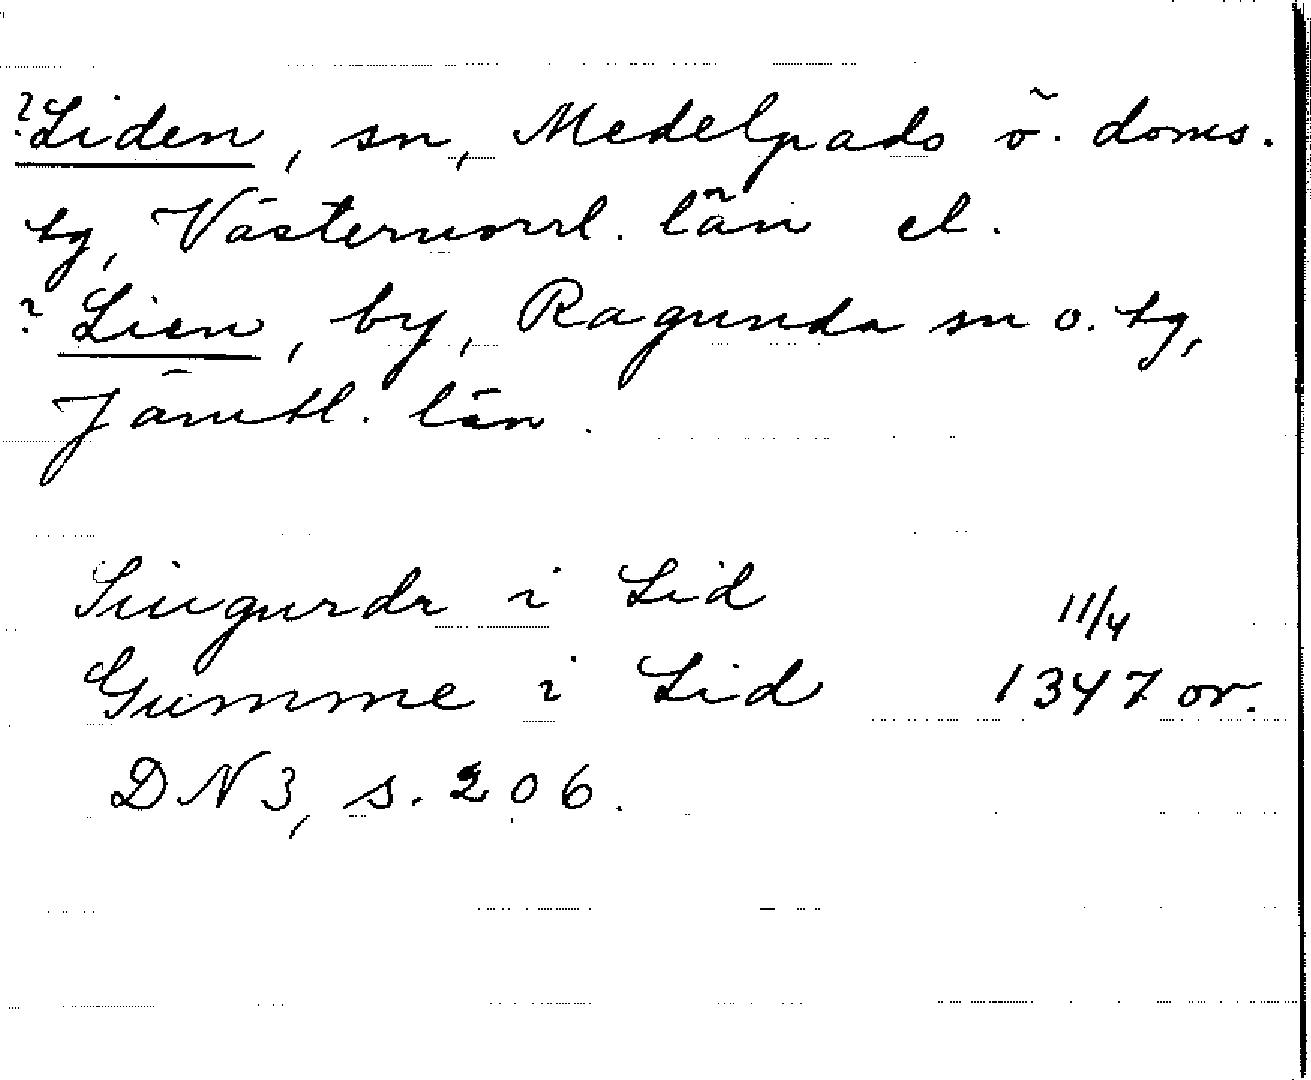 ?Liden, sn, Medelpads ö. doms.
tg, Västernorrl. län el.
? Lien, by, Ragunda sn o. tg,
Jämtl. län.
Siugurdr i Lid 11/4
Gumme i Lid 1347 or.
DN 3, s. 206.